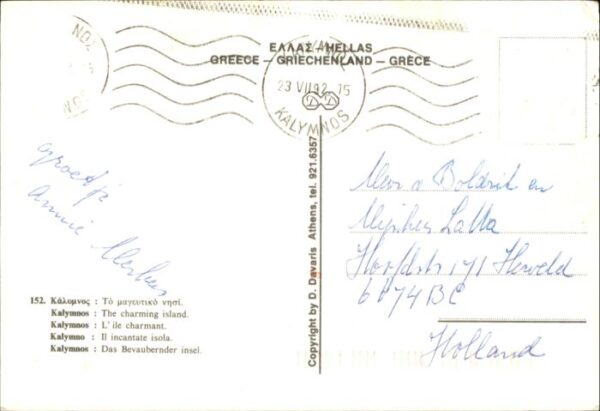 ΕΛΛΑΣ - HELLAS
GREECE - GRIECHENLAND - GRÈCE
23 VII 92 15
KALYMNOS
groetjes
Annie
152. Κάλυμνος : Τὸ μαγευτικὸ νησί.
Kalymnos : The charming island.
Kalymnos : L' ile charmant.
Kalymno : Il incantate isola.
Kalymnos : Das Bevaubernder insel.
Copyright by D. Davaris Athens, tel. 921.6357
Boldrik en
Hoofdstr 171 Herveld
6674 BC
Holland